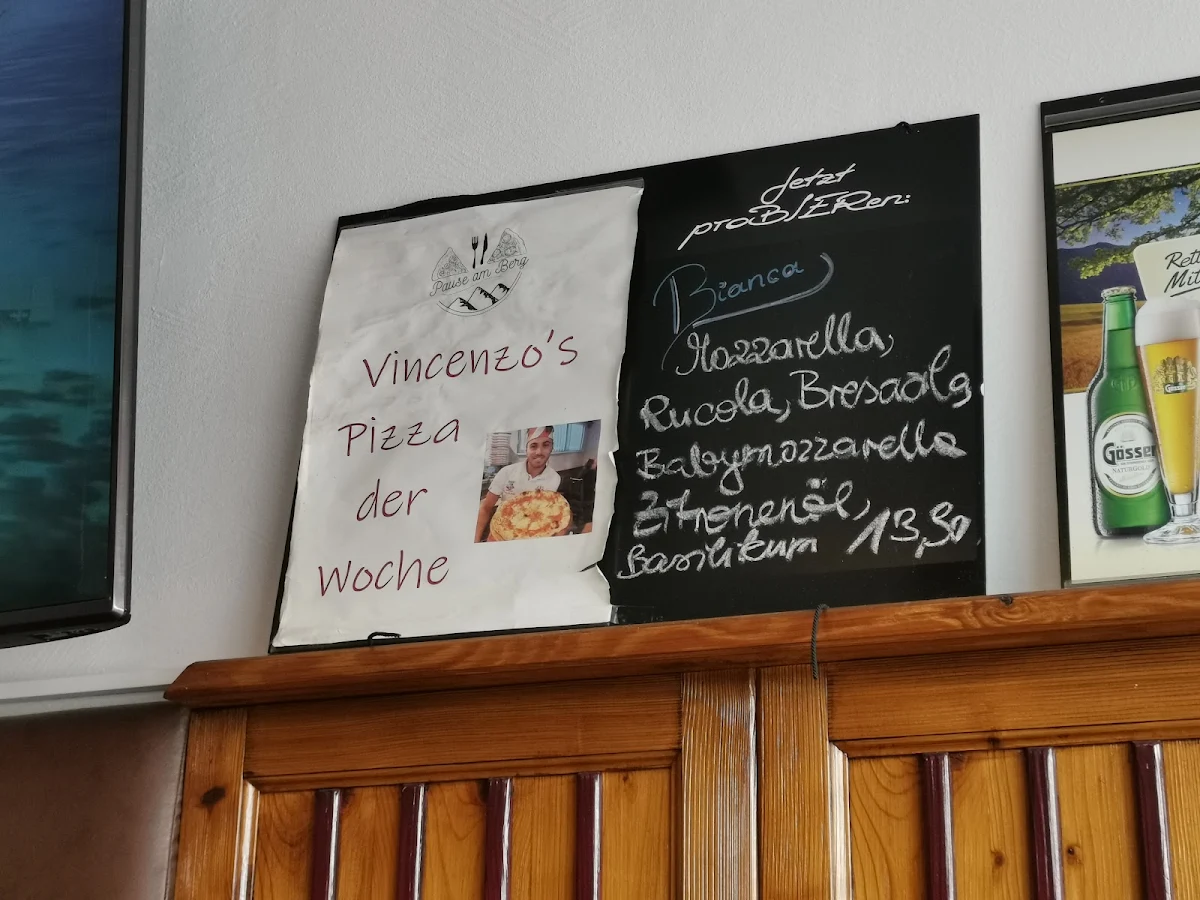 Pause am Berg
Vincenzo's
Pizza
der
Woche
Jetzt
proBIERen:
Bianca
Mozzarella,
Rucola, Bresaola,
Babymozzarella
Zitronenöl,
Basilikum 13,50
Gösser
NATURGOLD
Gösser